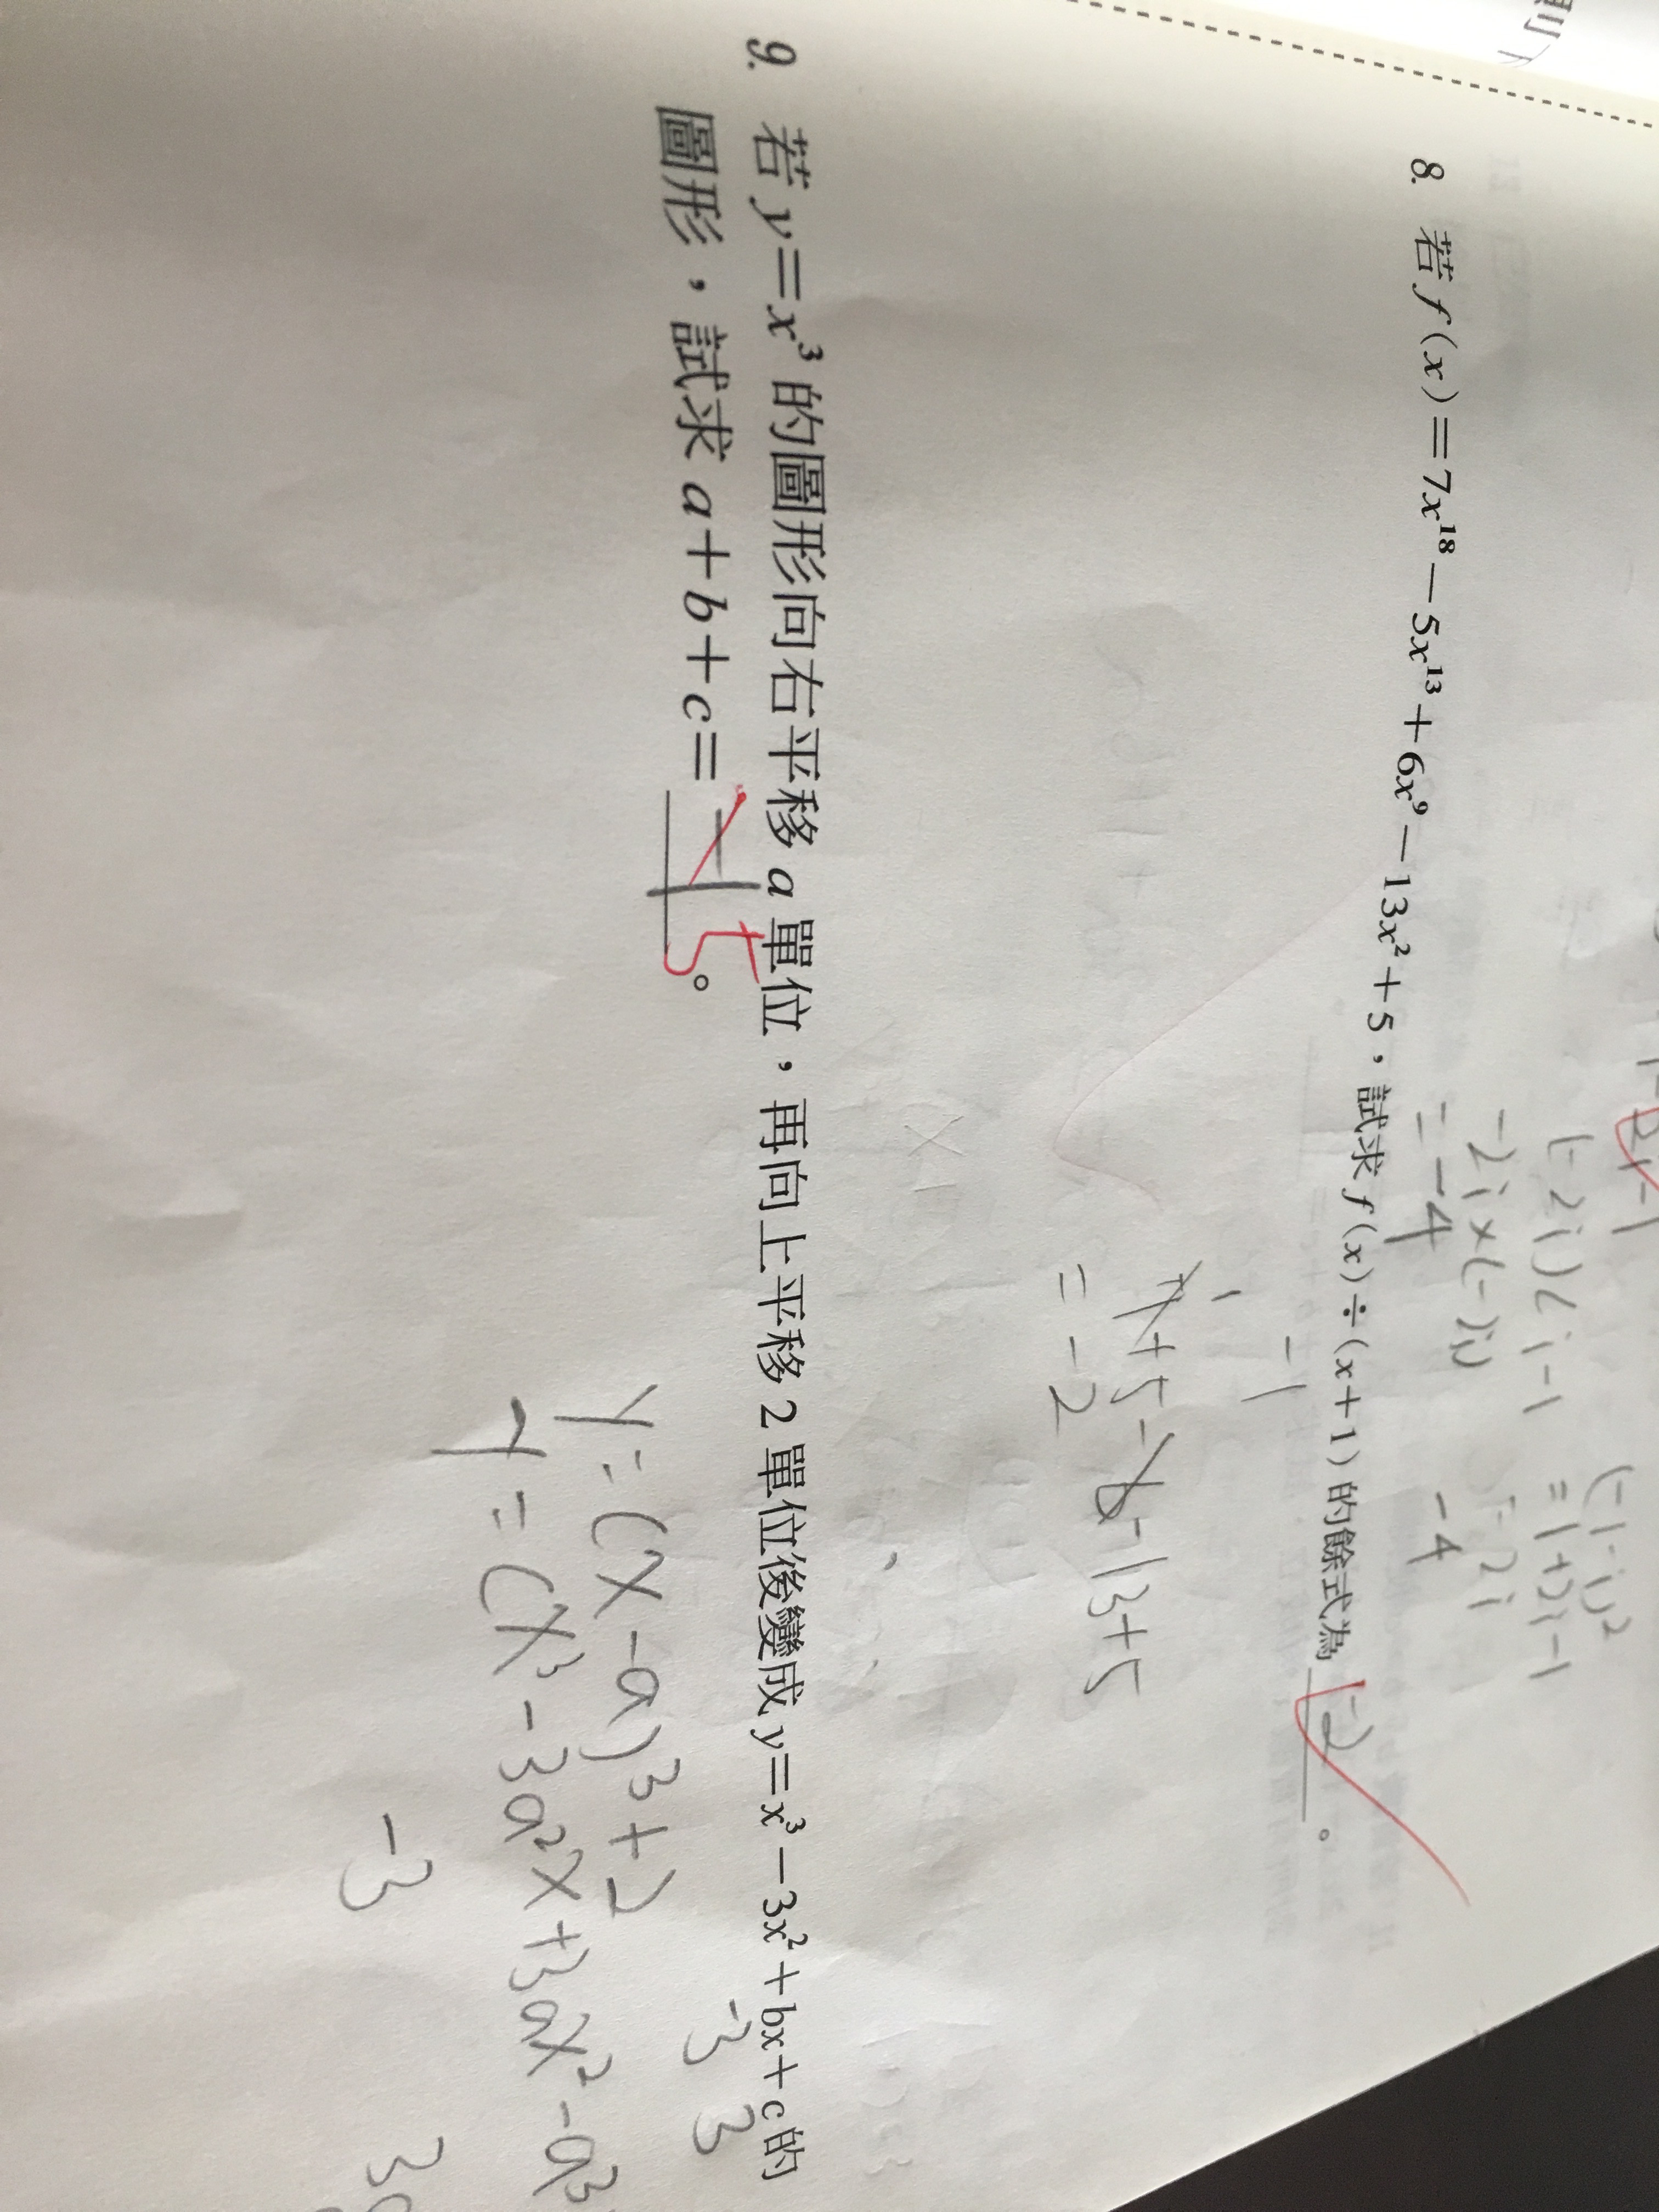 8. 若 f(x)=7x¹⁸－5x¹³＋6x⁹－13x²＋5，試求 f(x)÷(x＋1) 的餘式為 -2 。
(-1-i)²
(-2i)(i-1 =1+2i-1
-2i×(-)i)
=-4 -4
-1
7+5-6-13+5
=-2
9. 若 y=x³ 的圖形向右平移 a 單位，再向上平移 2 單位後變成 y=x³－3x²＋bx＋c 的
圖形，試求 a＋b＋c= 5 。
-3 3
y=(x-a)³+2
y=(x³-3a²x+3ax²-a³
-3